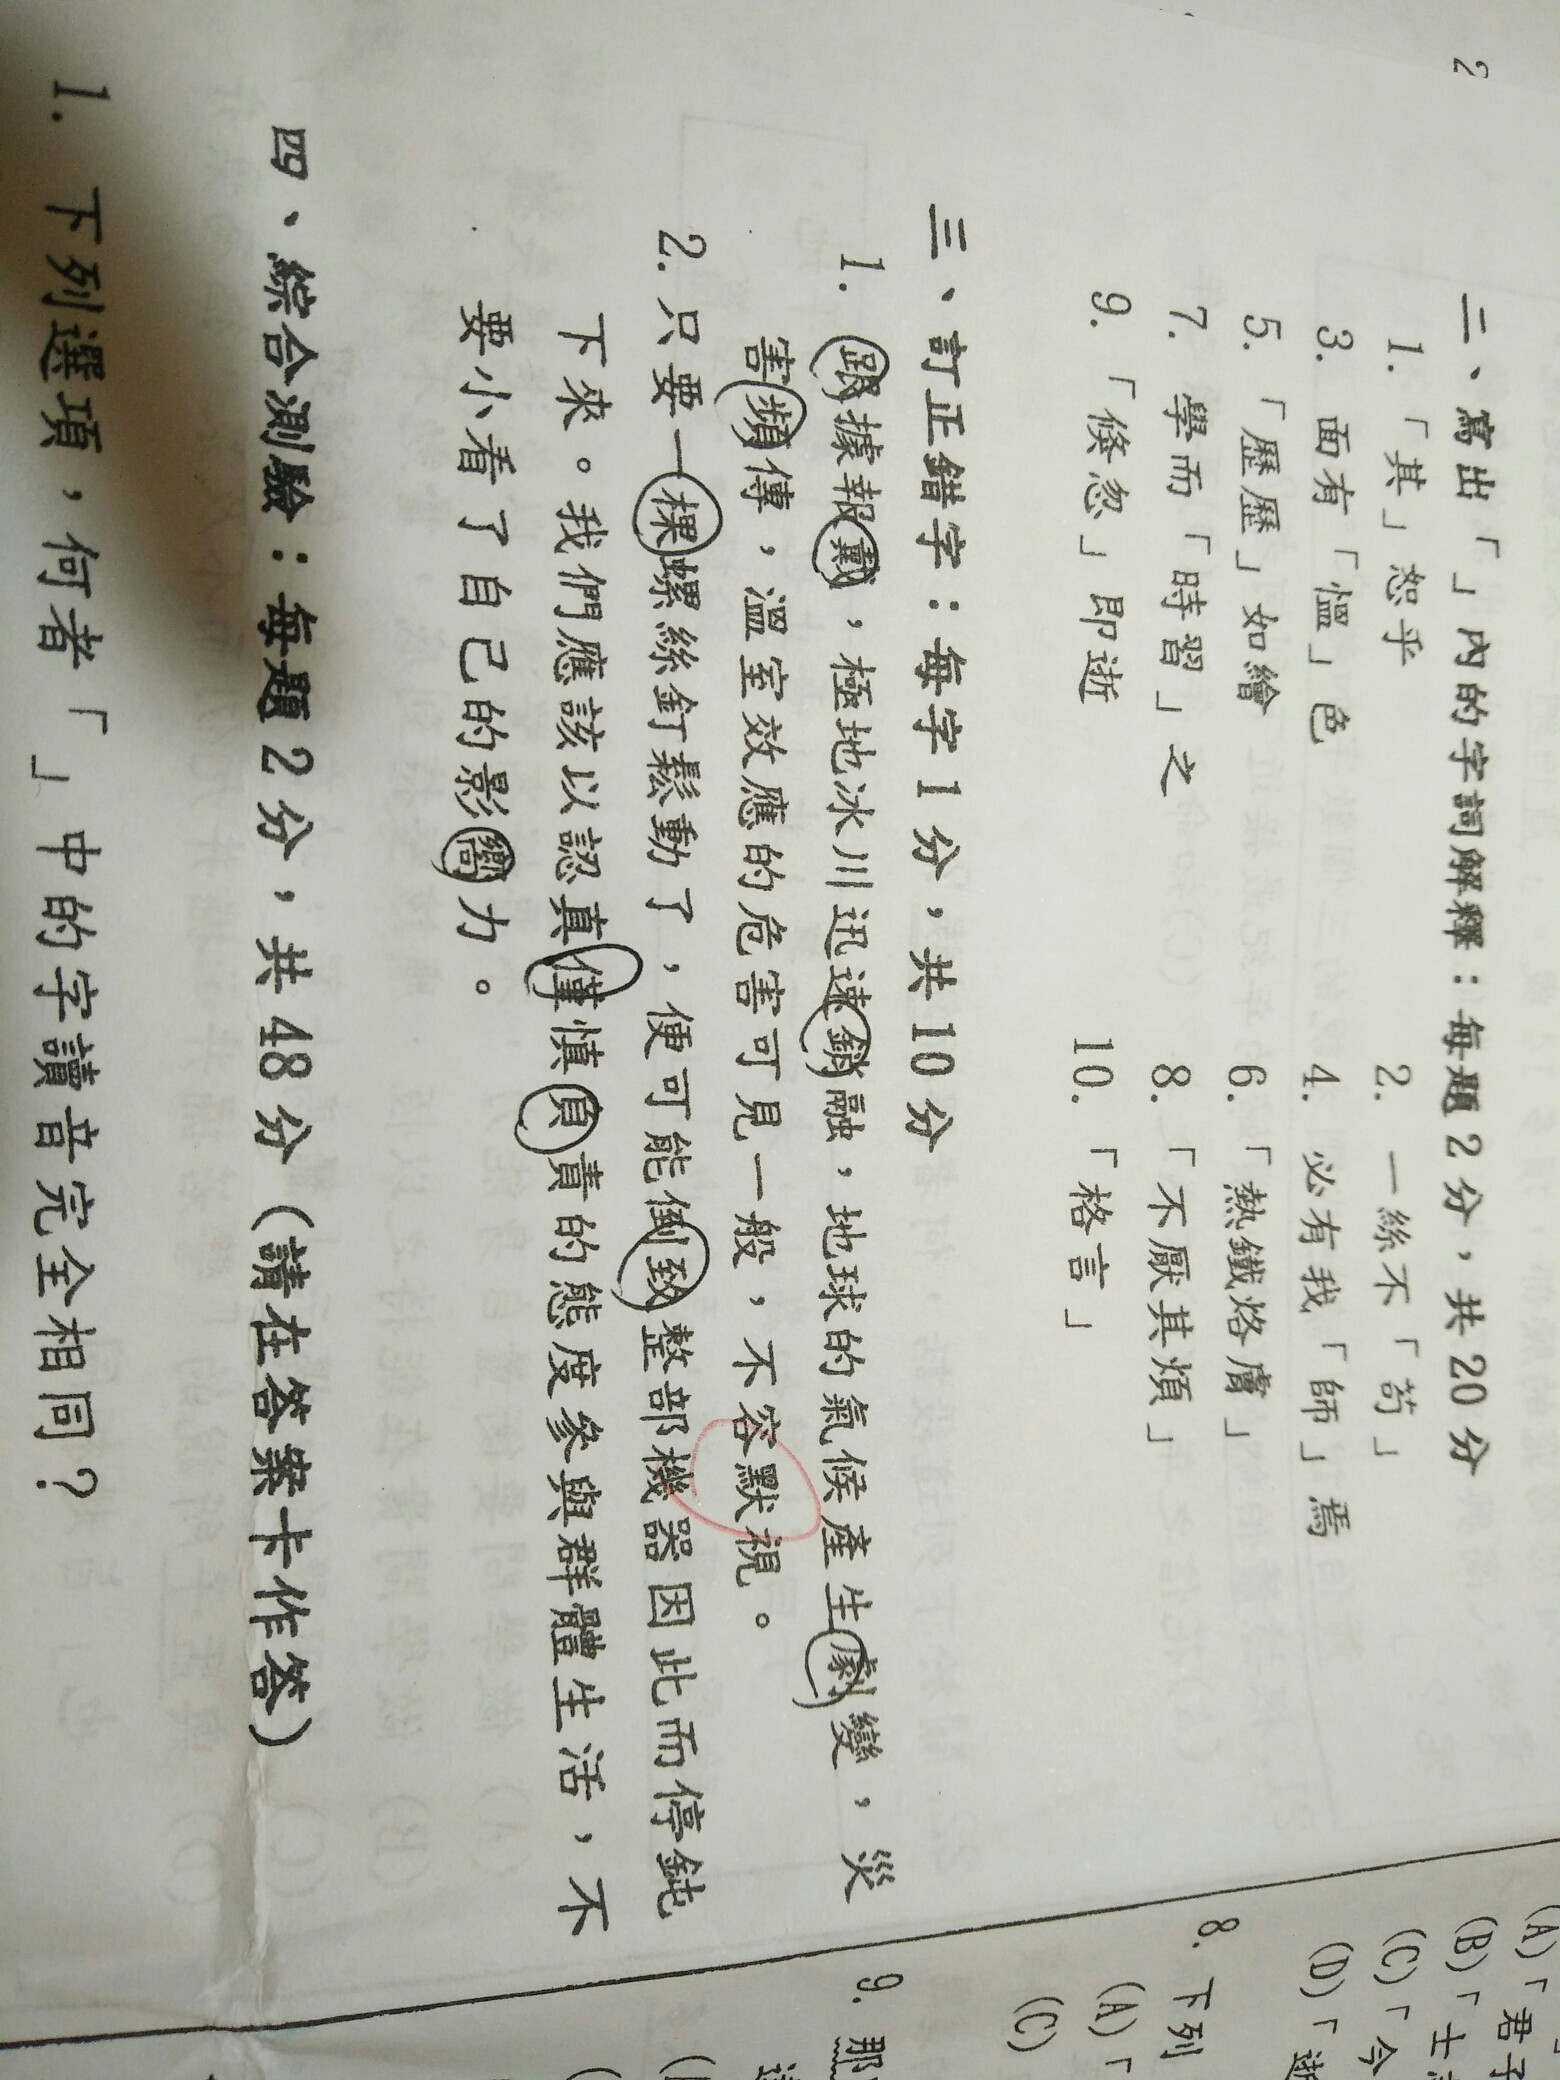 2
二、寫出「」內的字詞解釋：每題2分，共20分
1. 「其」恕乎 2. 一絲不「苟」
3. 面有「慍」色 4. 必有我「師」焉
5. 「歷歷」如繪 6. 「熱鐵烙膚」
7. 學而「時習」之 8. 「不厭其煩」
9. 「倏忽」即逝 10. 「格言」
三、訂正錯字：每字1分，共10分
1. 跟據報戴，極地冰川迅速銷融，地球的氣候產生劇變，災
害頻傳，溫室效應的危害可見一般，不容默視。
2. 只要一棵螺絲釘鬆動了，便可能倒致整部機器因此而停鈍
下來。我們應該以認真僅慎負責的態度參與群體生活，不
要小看了自己的影嚮力。
四、綜合測驗：每題2分，共48分（請在答案卡作答）
1. 下列選項，何者「」中的字讀音完全相同？
(A)「君子
(B)「士
(C)「今
(D)「逝
8. 下列
(A)「
(C)
9. 那